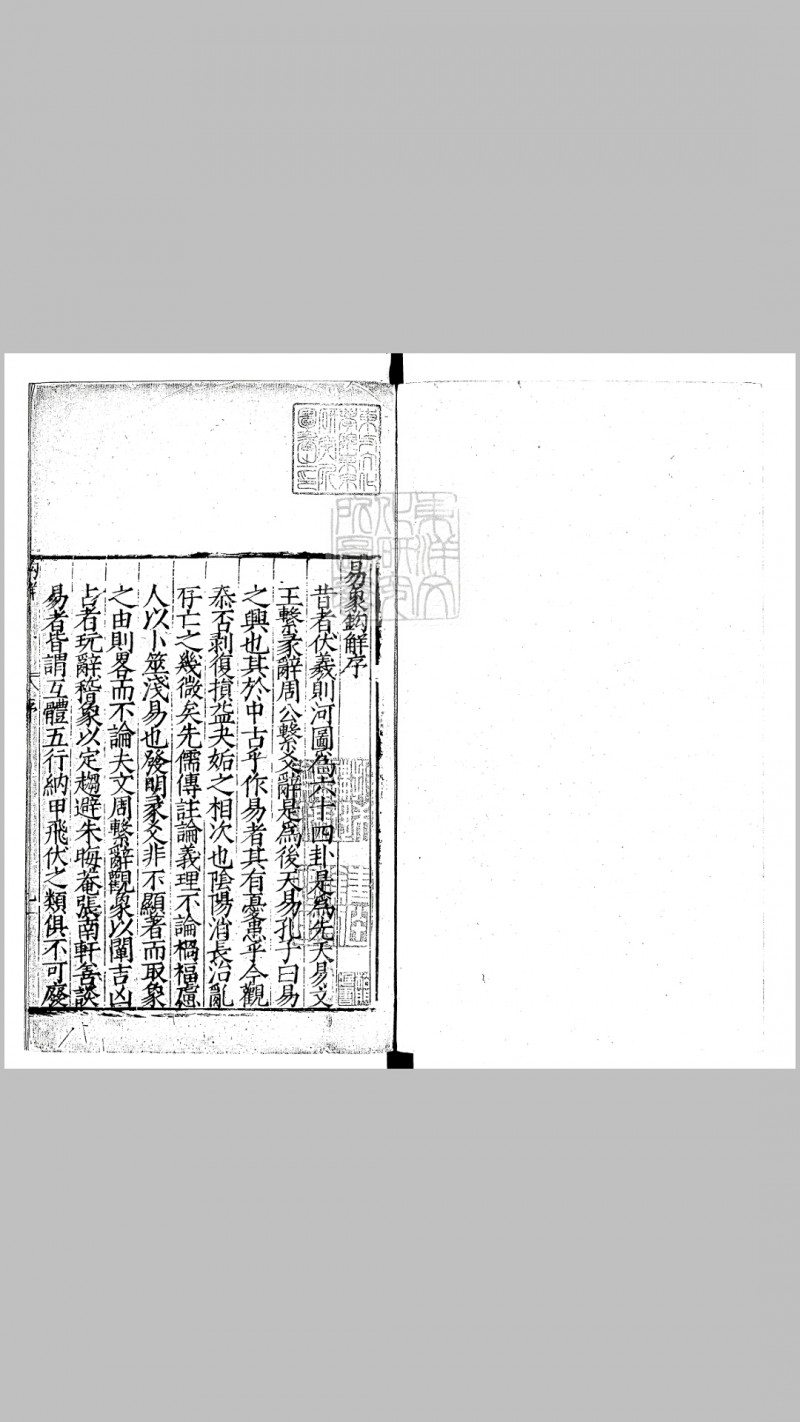 易象鈎解序
昔者伏羲則河圖為六十四卦是為先天易文
王繫彖辭周公繫爻辭是為後天易孔子曰易
之興也其於中古乎作易者其有憂患乎今觀
泰否剥復損益夬姤之相次也陰陽消長治亂
存亡之幾微矣先儒傳註論義理不論禍福慮
人以卜筮淺易也發明彖爻非不顯著而取象
之由則畧而不論夫文周繫辭觀象以闡吉凶
占者玩辭稽象以定趨避朱晦菴張南軒善談
易者皆謂互體五行納甲飛伏之類俱不可廢
東方文化
學院東京
研究所
圖書之印
東洋文
化研究